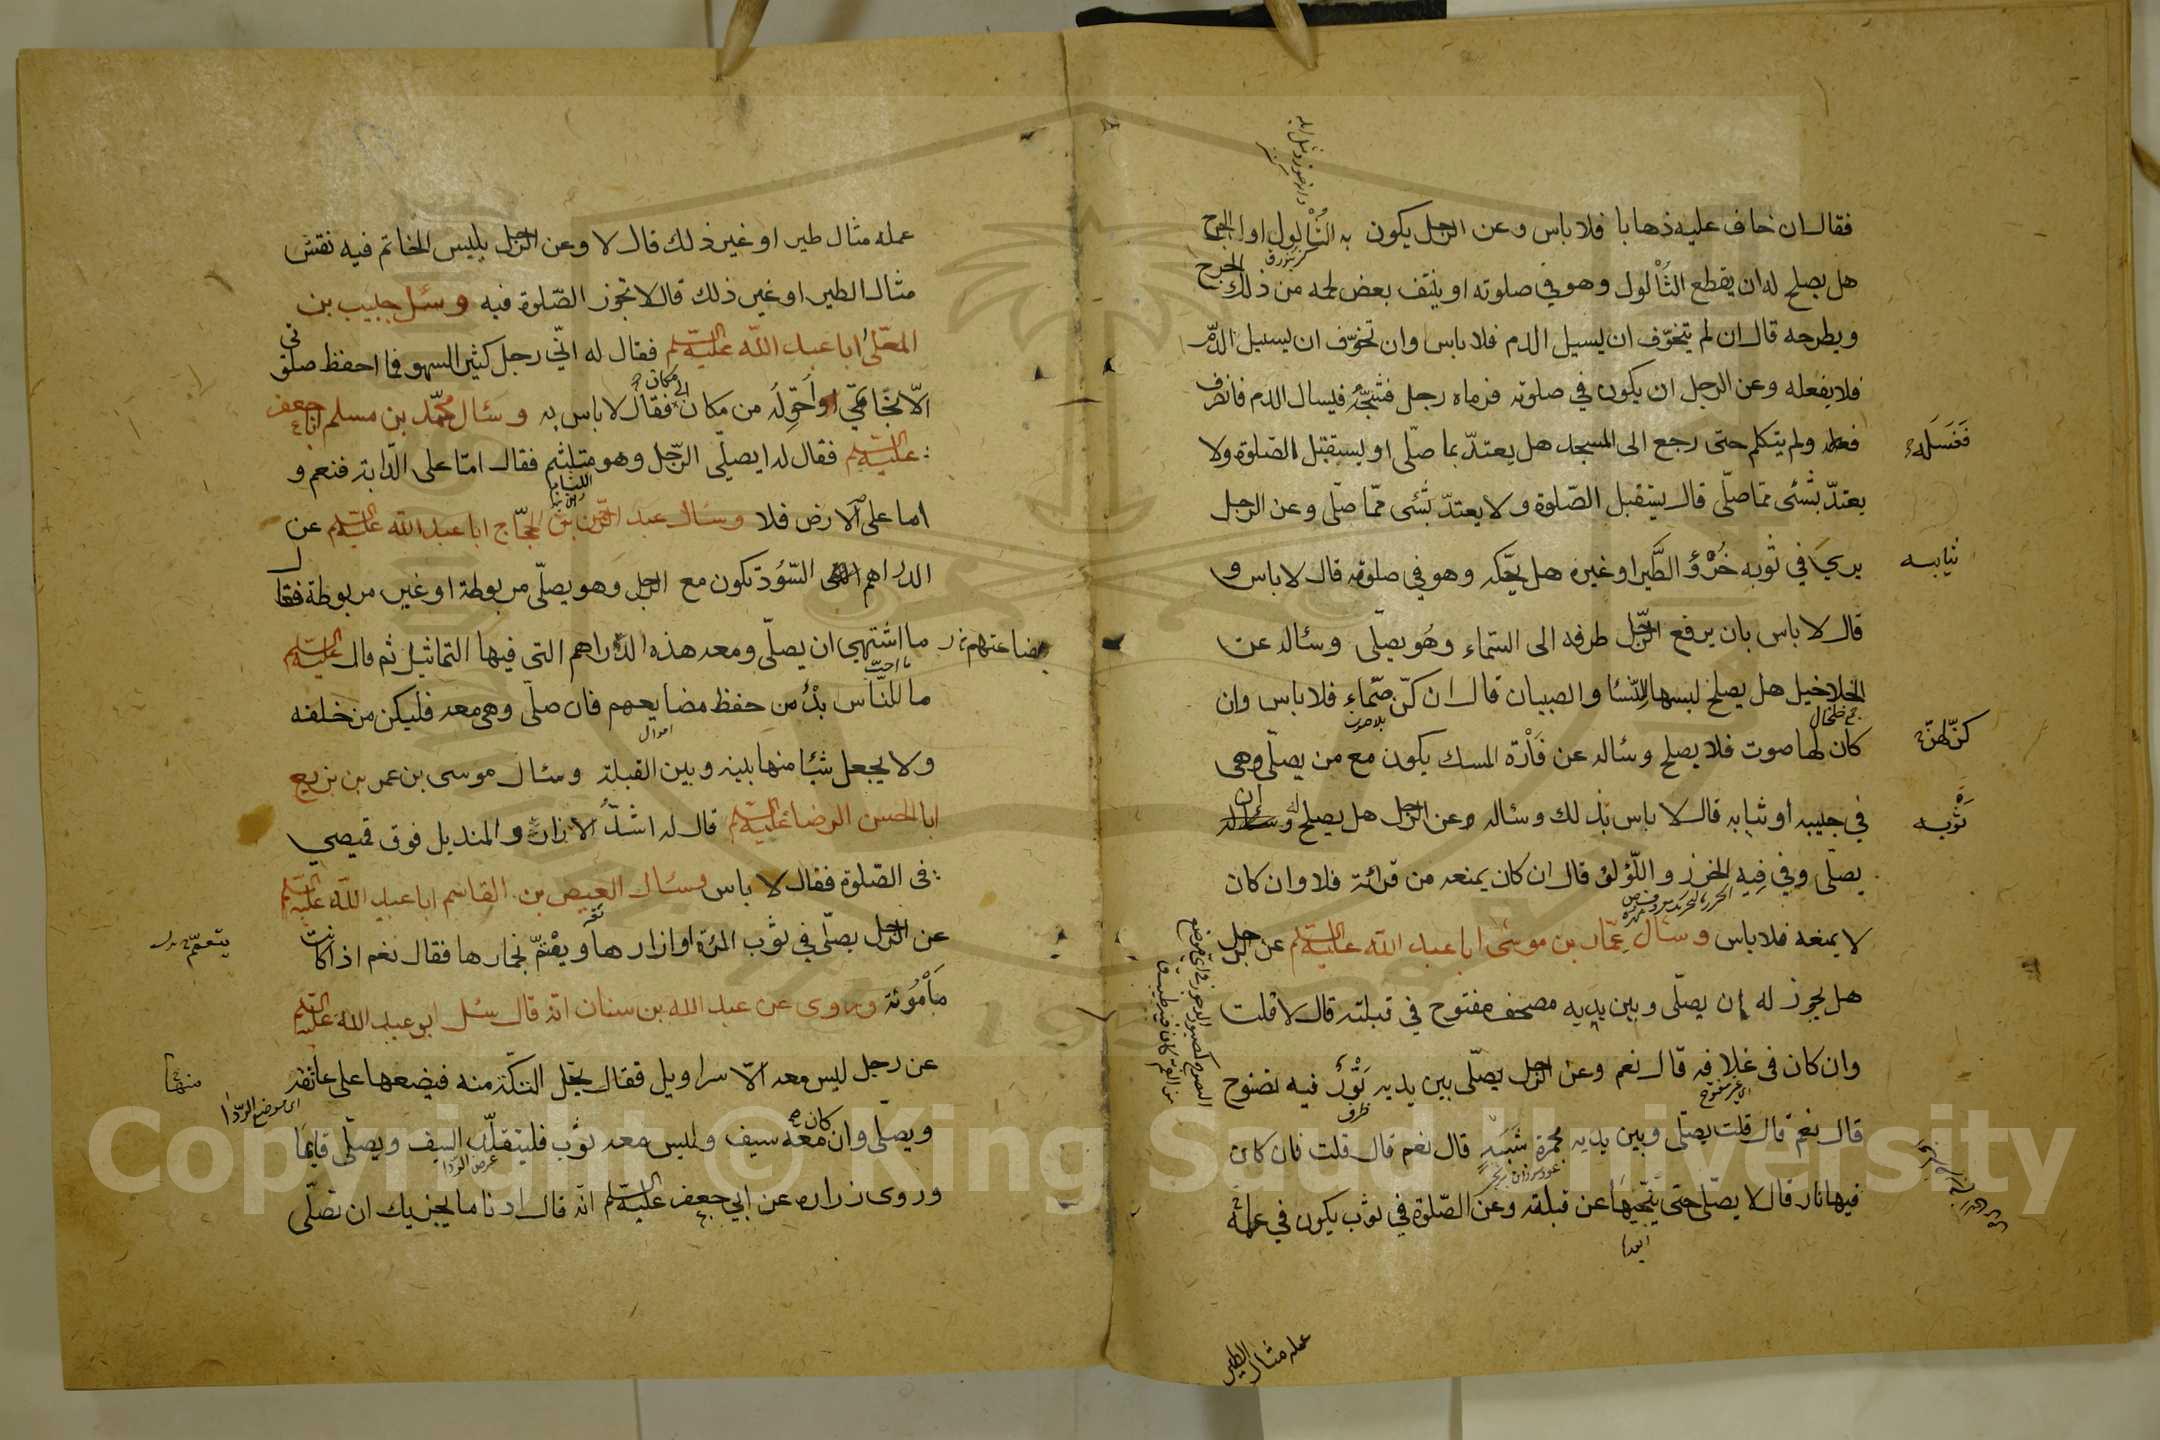 فقال ان خاف عليه ذهابا فلا باس وعن الرجل يكون به الثالول او الجرح
هل يصلح له ان يقطع الثالول وهو في صلوته او ينتف بعض لحمه من ذلك الجرح
ويطرحه قال ان لم يتخوّف ان يسيل الدم فلا باس وان تخوّف ان يسيل الدّم
فلا يفعله وعن الرجل ان يكون في صلوته فرماه رجل فشجّه فيسال الدم فانصرف
ولم يتكلم حتى رجع الى المسجد هل يعتدّ بما صلّى او يستقبل الصّلوة ولا
فغسله
يعتدّ بشئى ممّا صلّى قال يستقبل الصّلوة ولا يعتدّ بشئى ممّا صلّى وعن الرجل
يرى في ثوبه خُرْؤُ الطَّير او غيره هل يحّكه وهو في صلوة قال لا باس و
ثيابه
قال لا باس بان يرفع الرّجل طرفه الى السّماء وهُو يصلّى وسئاله عن
الخلاخيل هل يصلح لبسها للنّسا والصبيان قال ان كنّ صمّاء فلا باس وان
جمع خلخال
بلا صوت
كان لها صوت فلا يصلح وسئاله عن فَأْرة المسك يكون مع من يصلّى وهى
كنّ لهنّ
في جيبه او ثيابه قال لا باس بذلك وسئاله وعن الرّجل هل يصلح له ان
ثوبه
يصلّى وفي فِيه الخرز واللّؤلؤ قال ان كان يمنعه من قرائة فلا وان كان
لا يمنعه فلا باس وسئال عمّار بن موسى ابا عبد الله عليه السّلم عن الرجل
هل يجوز له ان يصلّى وبين يديه مصحف مفتوح في قبلته قال لا قلت
وان كان في غلافه قال نعم وعن الرّجل يصلّى بين يديه تَوْرٌ فيه نضوح
اى غير مفتوح
ظرف
قال نعم قال قلت يصلّى وبين يديه مجمرة شَبَهٍ قال نعم قال قلت فان كان
فيها نار قال لا يصلّى حتى ينحّيها عن قبلة وعن الصّلوة في ثوب يكون في عمله
عمله مثال الطير
عمله مثال طير او غير ذلك قال لا وعن الرّجل يلبس الخاتم فيه نقش
مثال الطير او غير ذلك قال لا تجوز الصّلوة فيه وسئل حبيب بن
المعلّى ابا عبد اللّه عليه السّلم فقال له انّى رجل كثير السهو فما احفظ صلوتى
الّا بخاتمى او أحوّله من مكان الى مكان فقال لا باس به وسئال محمّد بن مسلم ابا جعفر
عليه السّلم فقال له ايصلّى الرّجل وهو متلثم فقال امّا على الدّابة فنعم و
اما على الارض فلا وسئال عبد الرّحمن بن الحجّاج ابا عبد الله عليه السّلم عن
الدراهم السّود تكون مع الرجل وهو يصلّى مربوطة او غير مربوطة فقال
ما اشتهى ان يصلّى ومعه هذه الدّراهم التي فيها التماثيل ثم قال عليه السّلم
ما احبّ
بضاعتهم
ما للنّاس بدٌّ من حفظ بضايعهم فان صلّى وهى معه فليكن من خلفه
اموال
ولا يجعل شيئا منها بينه وبين القبلة وسئال موسى بن عمر بن بزيع
ابا الحسن الرضا عليه السّلم قال له اشدّ الازار والمنديل فوق قميصي
في الصّلوة فقال لا باس وسئال العيص بن القاسم ابا عبد اللّه عليه السّلم
عن الرّجل يصلّى في ثوب المرأة او ازارها ويعتمّ بخمارها فقال نعم اذا كانت
يتعمّم
مَأْمُونة وروى عن عبد الله بن سنان انّه قال سئل ابو عبد الله عليه السّلم
عن رجل ليس معه الّا سراويل فقال يحلّ التكّة منه فيضعها على عاتقه
منها
اى موضع الرّدا
ويصلّى وان كان معه سيف وليس معه ثوب فليتقلّد السيف ويصلّى قايمًا
عوض الرّدا
وروى زراره عن ابي جعفر عليه السّلم انّه قال ادنا ما يجزيك ان تصلّى